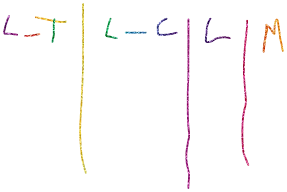 L-T L-C L M